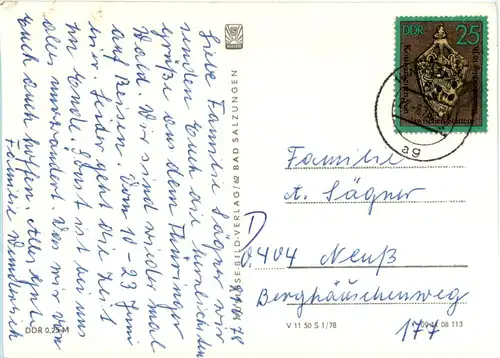 Liebe Familie Sägner wir
senden Euch die herzlichsten
Grüße aus dem Thüringer
Wald. Wir sind wieder mal
auf Reisen. Vom 10-23 Juni
hier. Leider geht die Zeit
zu Ende. Sonst ist bei uns
alles unverändert. Was wir von
Euch auch hoffen. Alles
Familie
78
BILD-VERLAG/62 BAD SALZUNGEN
DDR 0,25 M
V 11 50 S 1/78
DDR 25
ag
Familie
A. Sägner
D
0404 Neuß
Berghäuschenweg
177